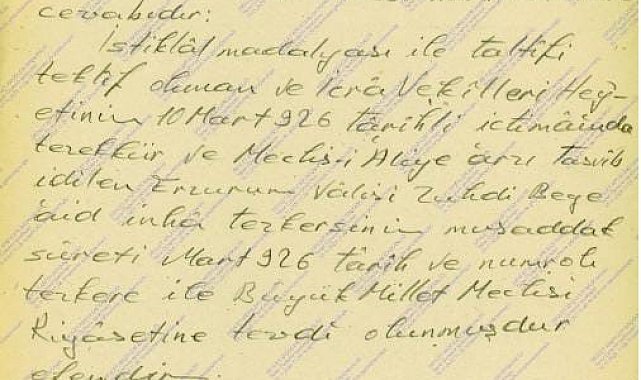 cevabıdır:
İstiklâl madalyası ile taltifi
teklif olunan ve İcrâ Vekilleri Hey-
etinin 10 Mart 926 târihli ictimâında
tezekkür ve Meclis-i Âliye arzı tasvib
idilen Erzurum Vâlisi Zühdi Beğe
âid inhâ tezkersinin musaddak
sûreti Mart 926 târih ve numrolı
tezkere ile Büyük Millet Meclisi
Riyâsetine tevdi olunmuşdur
efendim.